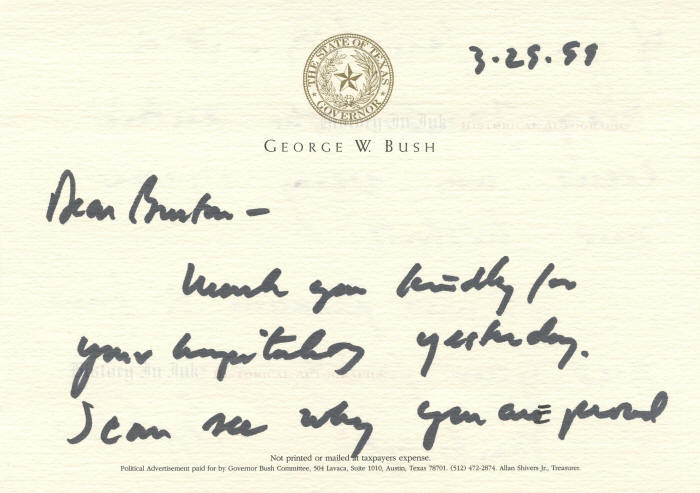 3.29.99
THE STATE OF TEXAS
GOVERNOR
GEORGE W. BUSH
Dear Burton —
Thank you kindly for
your hospitality yesterday.
I can see why you are proud
History In Ink HISTORICAL AUTOGRAPHS
History In Ink HISTORICAL AUTOGRAPHS
Not printed or mailed at taxpayers expense.
Political Advertisement paid for by Governor Bush Committee, 504 Lavaca, Suite 1010, Austin, Texas 78701. (512) 472-2874. Allan Shivers Jr., Treasurer.